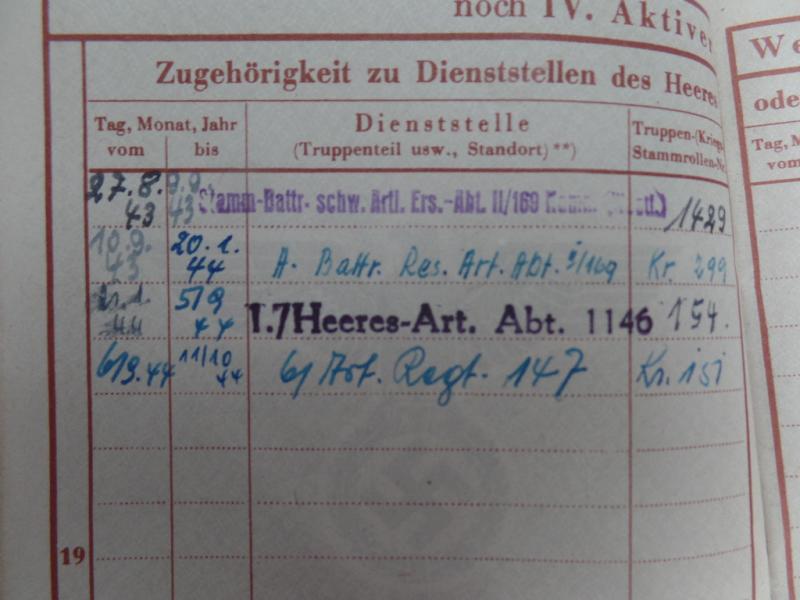 noch IV. Aktiver
We
Zugehörigkeit zu Dienststellen des Heeres
ode
Tag, Monat, Jahr
vom bis
Dienststelle
(Truppenteil usw., Standort)**)
Truppen-(Kriegs-
Stammrollen-Nr.
Tag, M
vom
27.8. 9.9.
43 43
Stamm-Battr. schw. Artl. Ers.-Abt. II/169
1429
10.9. 20.1.
43 44
A. Battr. Res. Art. Abt. I/169 Kr. 299
21.1. 5/9
44 44
1./Heeres-Art. Abt. 1146 154.
6/9.44 11/10
44
6/Art. Regt. 147 Kr. 151
19